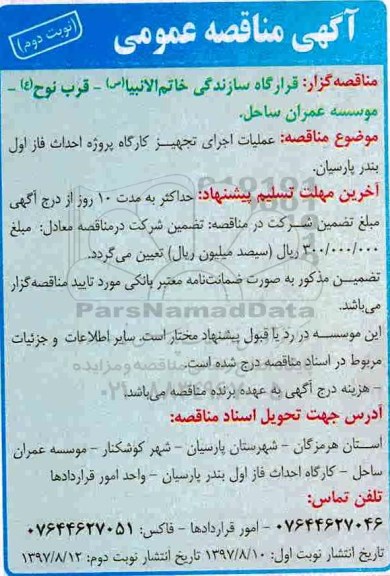 آگهی مناقصه عمومی
(نوبت دوم)
مناقصه‌گزار: قرارگاه سازندگی خاتم‌الانبیا(ص) – قرب نوح(ع) –
موسسه عمران ساحل.
موضوع مناقصه: عملیات اجرای تجهیز کارگاه پروژه احداث فاز اول
بندر پارسیان.
آخرین مهلت تسلیم پیشنهاد: حداکثر به مدت ۱۰ روز از درج آگهی
مبلغ تضمین شرکت در مناقصه: تضمین شرکت درمناقصه معادل: مبلغ
۳۰۰/۰۰۰/۰۰۰ ریال (سیصد میلیون ریال) تعیین می‌گردد.
تضمین مذکور به صورت ضمانت‌نامه معتبر بانکی مورد تایید مناقصه‌گزار
می‌باشد.
ParsNamadData
این موسسه در رد یا قبول پیشنهاد مختار است. سایر اطلاعات و جزئیات
مربوط در اسناد مناقصه درج شده است.
– هزینه درج آگهی به عهده برنده مناقصه می‌باشد.
آدرس جهت تحویل اسناد مناقصه:
استان هرمزگان – شهرستان پارسیان – شهر کوشکنار – موسسه عمران
ساحل – کارگاه احداث فاز اول بندر پارسیان – واحد امور قراردادها
تلفن تماس:
۰۷۶۴۴۶۲۷۰۴۶ – امور قراردادها – فاکس: ۰۷۶۴۴۶۲۷۰۵۱
تاریخ انتشار نوبت اول: ۱۳۹۷/۸/۱۰ تاریخ انتشار نوبت دوم: ۱۳۹۷/۸/۱۲